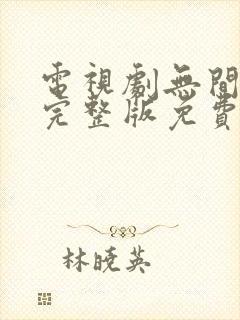 電視劇無間
完整版免費
林曉英